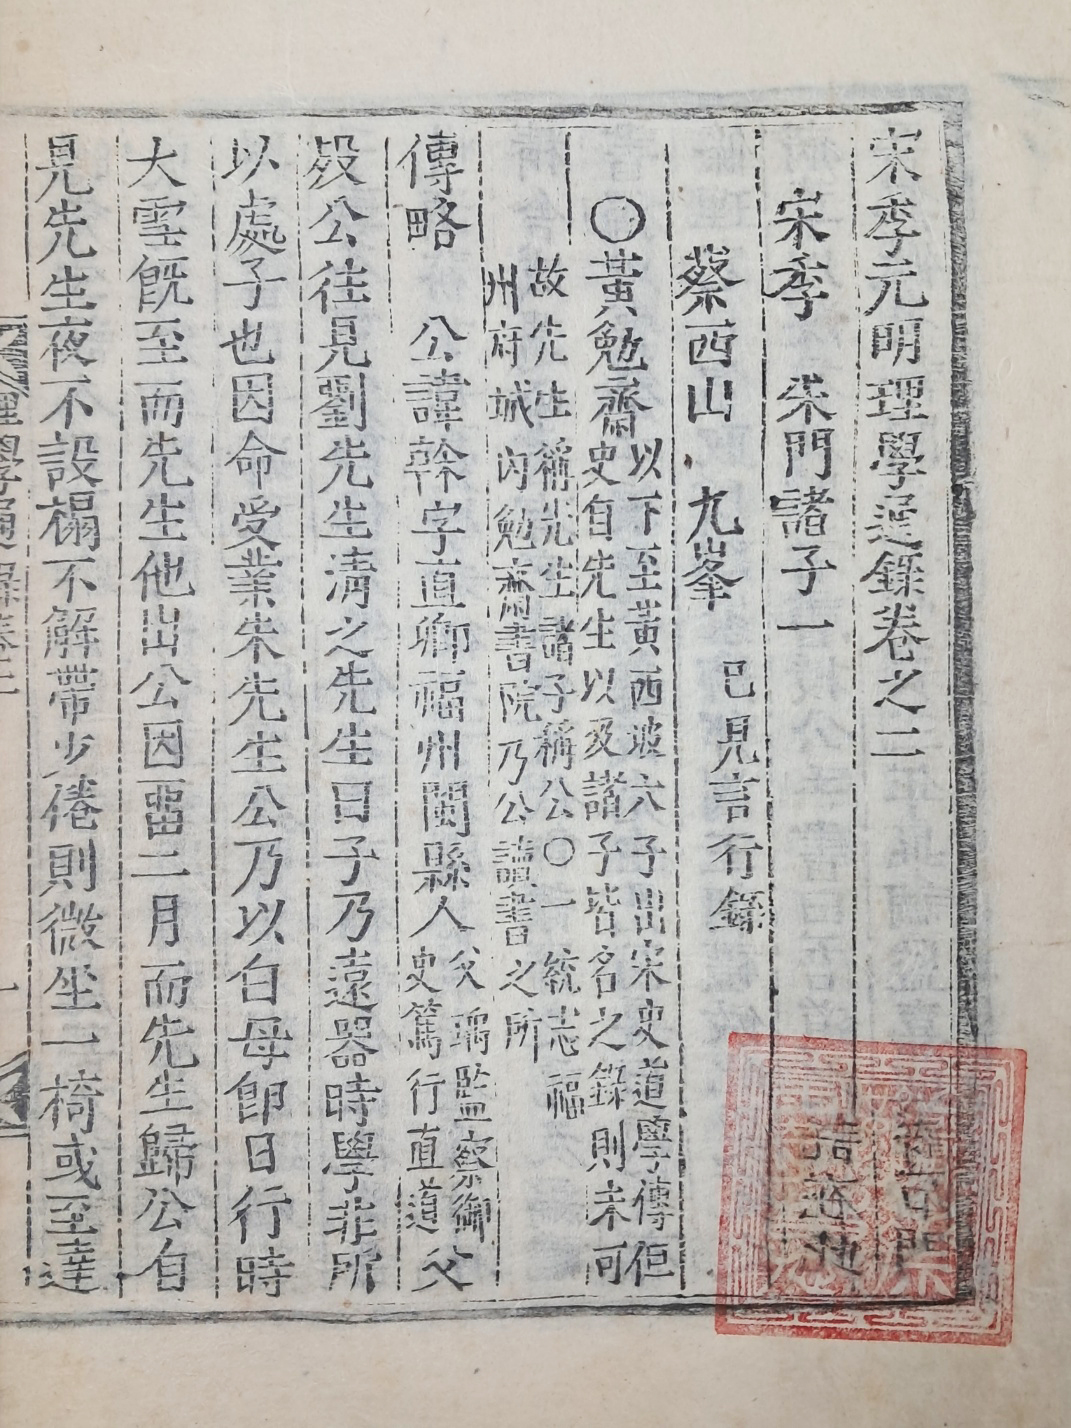 宋季元明理學通錄卷之二
宋季 朱門諸子一
蔡西山 九峯 已見言行錄
〇黃勉齋 以下至黃西坡六子出宋史道學傳但
史自先生以及諸子皆名之錄則未可
故先生稱先生諸子稱公〇一統志福
州府城內勉齋書院乃公讀書之所
傳略 公諱榦字直卿福州閩縣人 父瑀監察御
史篤行直道 父
歿公往見劉先生淸之先生曰子乃遠器時學非所
以處子也因命受業朱先生公乃以白母卽日行時
大雪旣至而先生他出公因畱二月而先生歸公自
見先生夜不設榻不解帶少倦則微坐一椅或至達